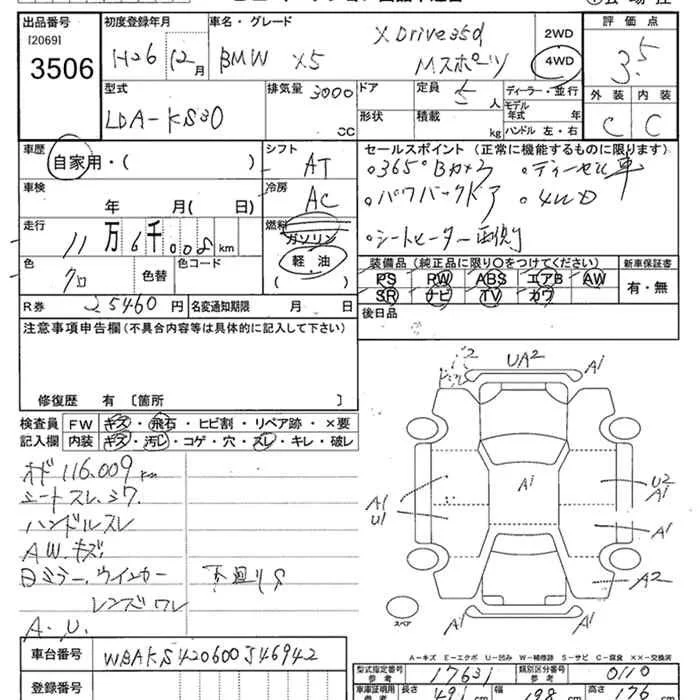 出品番号
[2069]
3506
初度登録年月
H26 12月
車名・グレード
BMW X5
XDrive35d
Mスポーツ
2WD
4WD
評価点
3.5
外装 内装
C C
型式
LDA-KS30
排気量 3000
CC
ドア
形状
定員 5 人
積載 kg
ディーラー・並行
モデル年式 年
ハンドル 左・右
車歴
自家用・( )
シフト
AT
車検
年 月( 日)
冷房
AC
走行
11万6千008km
燃料
ガソリン
軽・油
( )
色
クロ
色替
色コード
R券 25460円
名変通知期限 月 日
セールスポイント (正常に機能するものに限ります)
・365°Bカメラ ・ディーゼル車
・パワーバックドア ・4WD
・シートヒーター両側
装備品 (純正品に限り○をつけてください)
新車保証書
PS RW ABS エアB AW
SR ナビ TV カワ
有・無
後日品
注意事項申告欄 (不具合内容等は具体的に記入して下さい)
修復歴 有 [箇所 ]
検査員
記入欄
FW キズ・飛石・ヒビ割・リペア跡・×要
内装 キズ・汚し・コゲ・穴・スレ・キレ・破レ
オド116.009km
シートスレ.シワ.
ハンドルスレ
A.W.キズ
日ミラー.ウインカー
レンズワレ
下廻りS
A.U.
UA2
A1
A1
U1
A1
U2
A1
A1
A2
A1
スペア
A−キズ E−エクボ U−凹み W−補修跡 S−サビ C−腐食 ××−交換済
車台番号
WBAKS420600J46942
登録番号
型式指定番号
参考
17631
類別区分番号
参考
0110
車庫証明用
参考
長さ 491cm
幅 198cm
高さ 176cm